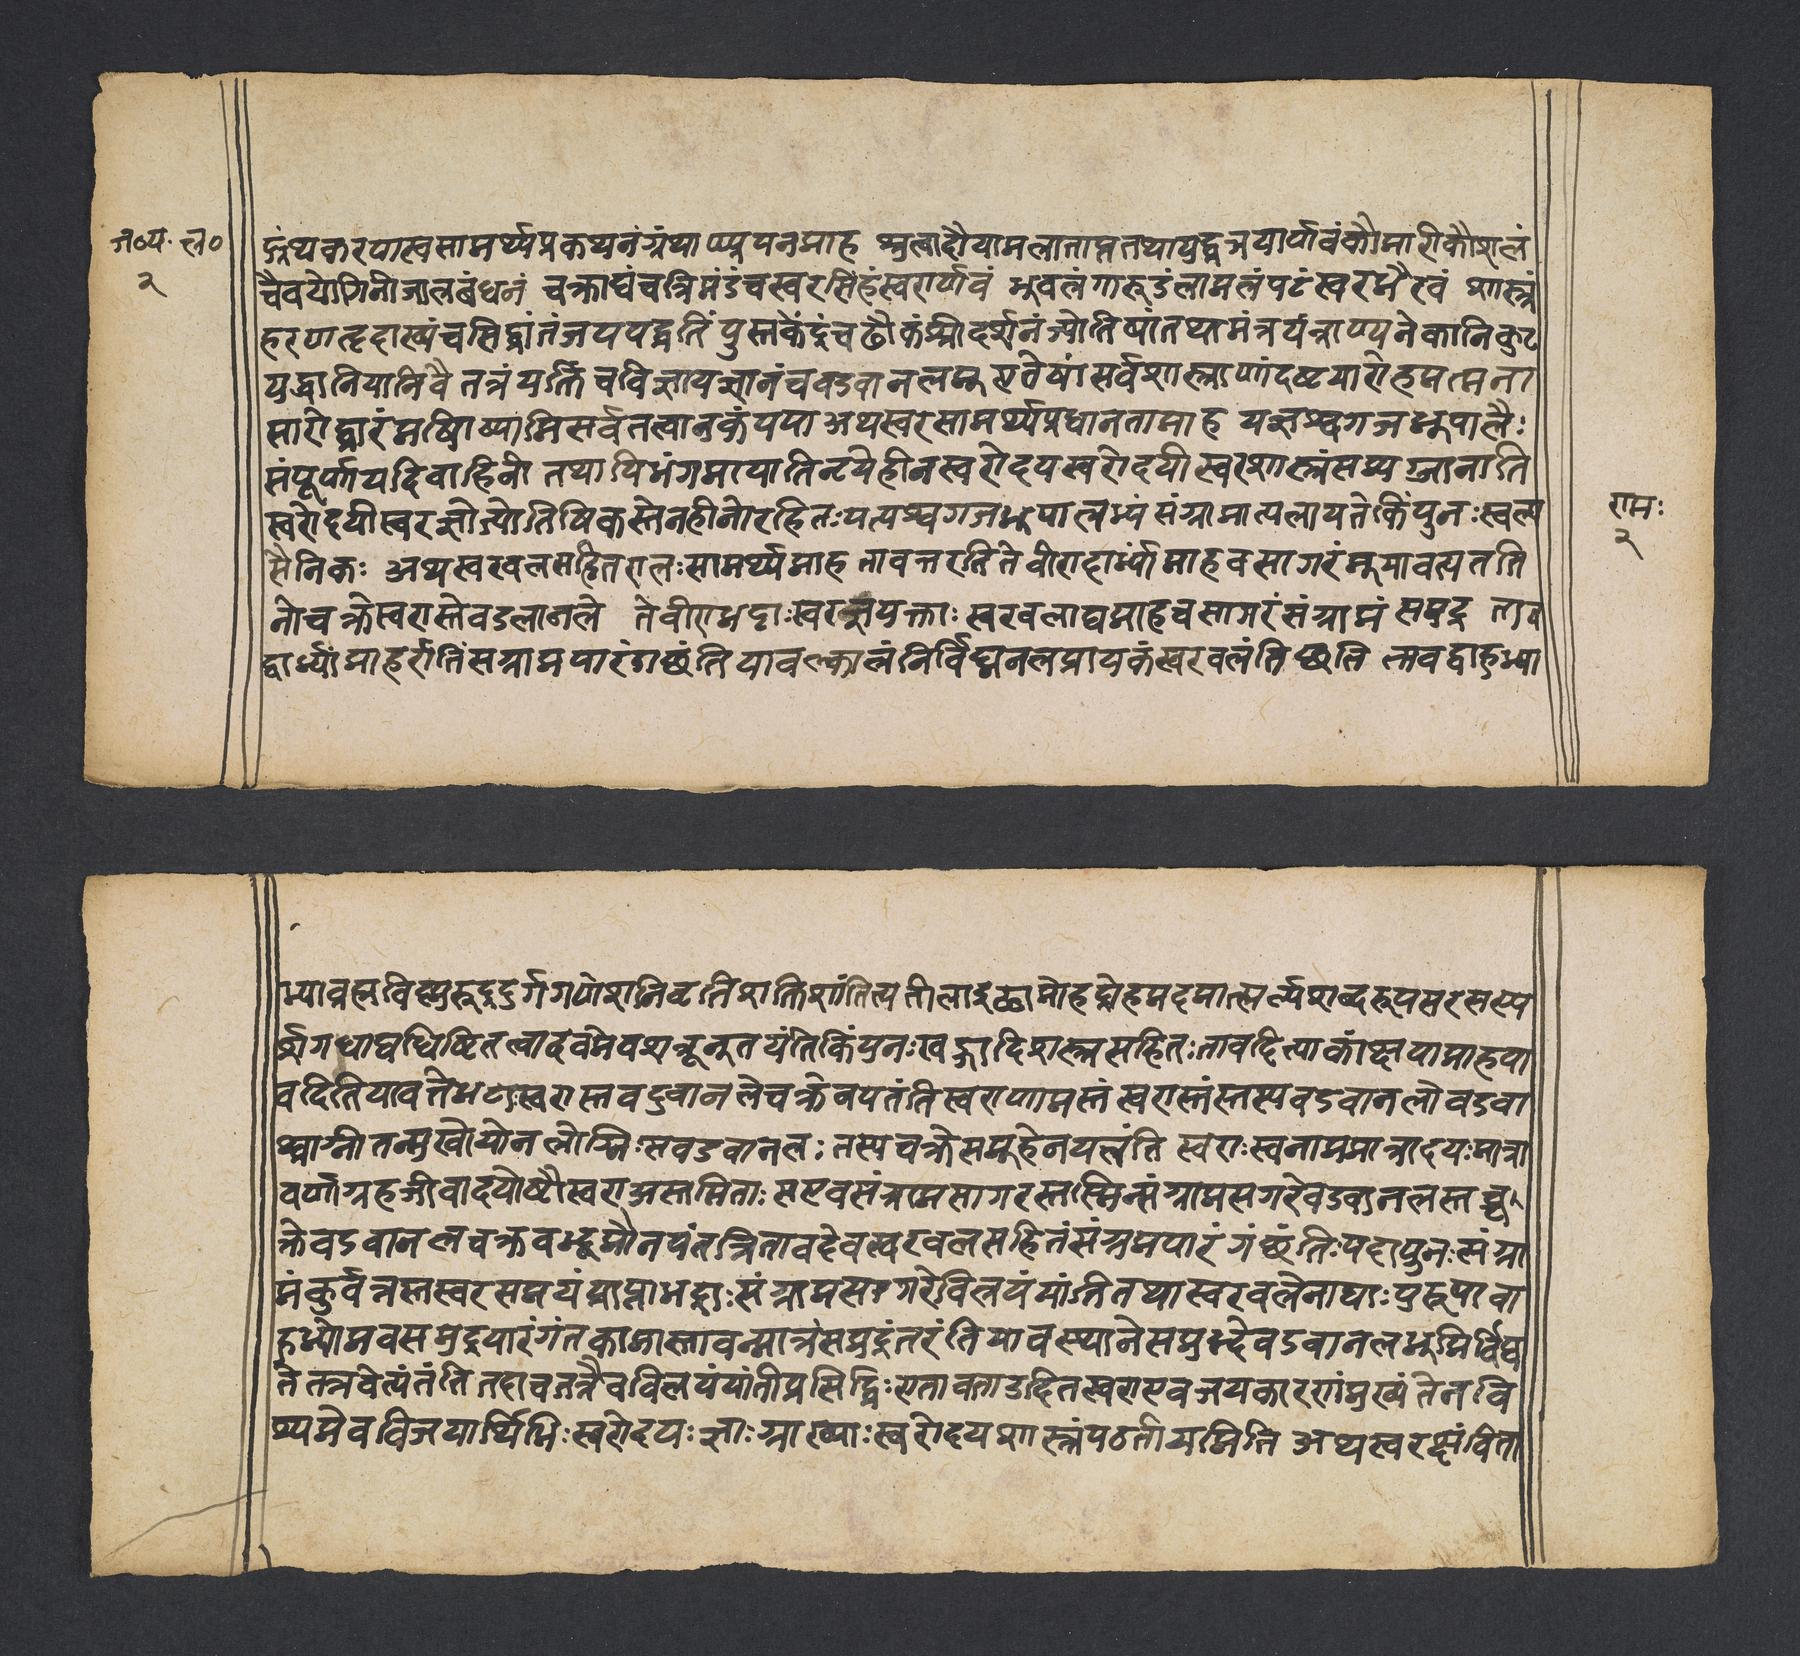 ज०च० ल०
२
ग्रंथकरणाख्यसामर्थ्यप्रकथनं ग्रंथाध्ययनमाह श्रुत्वादौयामलातात्मतथायुद्धजयार्णवंकौमारीकौशलं
चैवयोगिनीजालबंधनं चक्राघंचत्रिमंडंचस्वरसिंहंस्वरार्णवं भुवलंगारुडंलामलंपटंस्वरभैरवं शास्त्रं
हरणतृदाख्यंचसिद्धांतंजयपद्धतिं पुस्तकेंदुंचढौकंश्रीदर्शनंज्योतिषांतथामंत्रयंत्राण्यनेकानिकुट
युद्धानियानिवै तत्रंयत्तिंचविज्ञायज्ञानंचवडवानलम् एतेषांसर्वशास्त्राणांदृष्टयारोहमात्मना
सारोद्धारंभणिष्यामिसर्वतत्वानुकंपया अथस्वरसामर्थ्यप्रधानतामाह यत्रश्वगजभूपालैः
संपूर्णायदिवाहिनी तथापिभंगमायातिनृपोहीनस्वरोदय स्वरोदयीस्वरशास्त्रंसम्यग्जानाति
स्वरोदयीस्वरज्ञोज्योतिषिकस्तेनहीनोरहितःपत्यश्वगजभूपालभ्यं संग्रामात्पलायतेकिंपुनःस्वल्प
सैनिकः अथस्वरबलसहितराज्ञःसामर्थ्यमाह तावत्तरंतितेवीरादोर्भ्यामाहवसागरंम् यावत्पतति
नोचक्रेस्वरास्तेवडलानले तेवीराभटाःस्वरबलयुक्ताः स्वरबलाघमाहवसागरंसंग्रामं समुद्र ताव
द्वार्भ्यांमाहर्रातिंसग्रामपारंगच्छंतियावत्कालंनिर्विघ्नानलप्रायकंस्वरबलंतिष्ठति तावद्वाहुभ्या
रामः
२
भ्याब्रह्मविष्णुरुद्रदुर्गगणेशनिवृत्तिशक्तिशांतित्यतीलाइच्छामोहद्रोहमदमात्सर्य्यशब्दरूपसरसस्प
र्शगंधाद्यधिष्टितत्वादेवमेवशत्रून्नुतयंतिकिंपुनःखड्गादिशस्त्रसहितःतावदित्याकांक्षायामाहया
वदितियावत्तेभटास्वरास्तवडवानलेचक्रेनपतंतिस्वराणामस्तं स्वरास्तंस्तस्यवडवानलौवडवा
श्वाग्नीतन्मुखोयोनलोग्निःसवडवानलः तस्यचक्रेसमूहेनयलंति स्वराःस्वनाममात्रादयःमात्रा
वर्णग्रहजीवादयोष्टौस्वराअस्तमिताः सएवसंग्रामसागरस्तस्मिन्संग्रामसगरेवडवानलस्तच्च
क्रेवडवानलचक्रवद्भूमौनपंतन्नितावदेवस्वरबलसहितंसंग्रामपारं गंछंतिःयदापुनःसंग्रा
मंकुर्वन्नस्तस्वरसमयंप्राप्नाभट्टाःसंग्रामसागरेविलयंयांतीतथास्वरबलेनाघाःपुरुषावा
हुभ्यामवसमुद्रपारंगंतकामास्तावन्मात्रंसमुद्रंतरंतियावस्थानेसमुद्रेवडवानलभूमिर्विद्य
ते तत्रवेत्यंतंति तदाचतत्रैवविलयंयांतीप्रसिद्धिः एतावताउदितस्वराएवजयकारणंमुख्यं तेनवि
श्यमेवविजयार्थिभिःस्वरोदयःज्ञाःग्राख्याःस्वरोदयशास्त्रंपठनीयमिति अथस्वरज्ञंविता